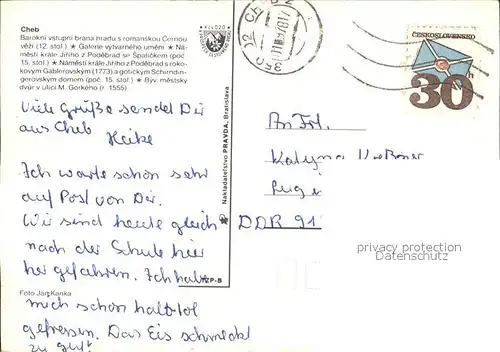 Cheb
Barokní vstupní brána hradu s romanskou Černou
věží (12. stol.) ★ Galerie výtvarného umění ★ Ná-
městí krále Jiřího z Poděbrad se Špalíčkem (poč.
15. stol.) ★ Náměstí krále Jiřího z Poděbrad s roko-
kovým Gablerovským (1773) a gotickým Schirndin-
gerovským domom (poč. 15. stol.) ★ Býv. městský
dvůr v ulici M. Gorkého (r. 1555)
Viele Grüße sendet Dir
aus Cheb
Heike
Ich warte schon sehr
auf Post von Dir.
Wir sind heute gleich
nach der Schule hier
her gefahren. Ich hab
mich schon halb tot
gefressen. Das Eis schmeckt
zu gut!
Foto Jan Kanka
Nakladateľstvo PRAVDA, Bratislava
350 02 CHEB 2
ČESKOSLOVENSKO
30h
An Frl.
Katyna
DDR 91
privacy protection
Datenschutz